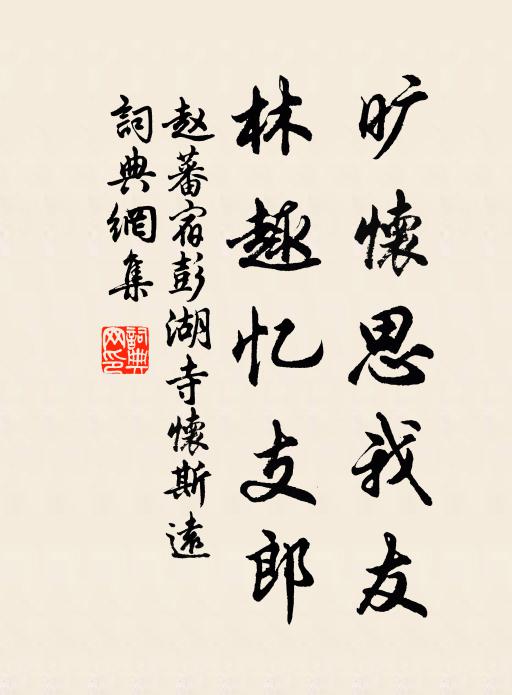 旷懷思我友
林趣忆支郎
赵蕃宿彭湖寺懷斯遠
詞典網集
詞典网印